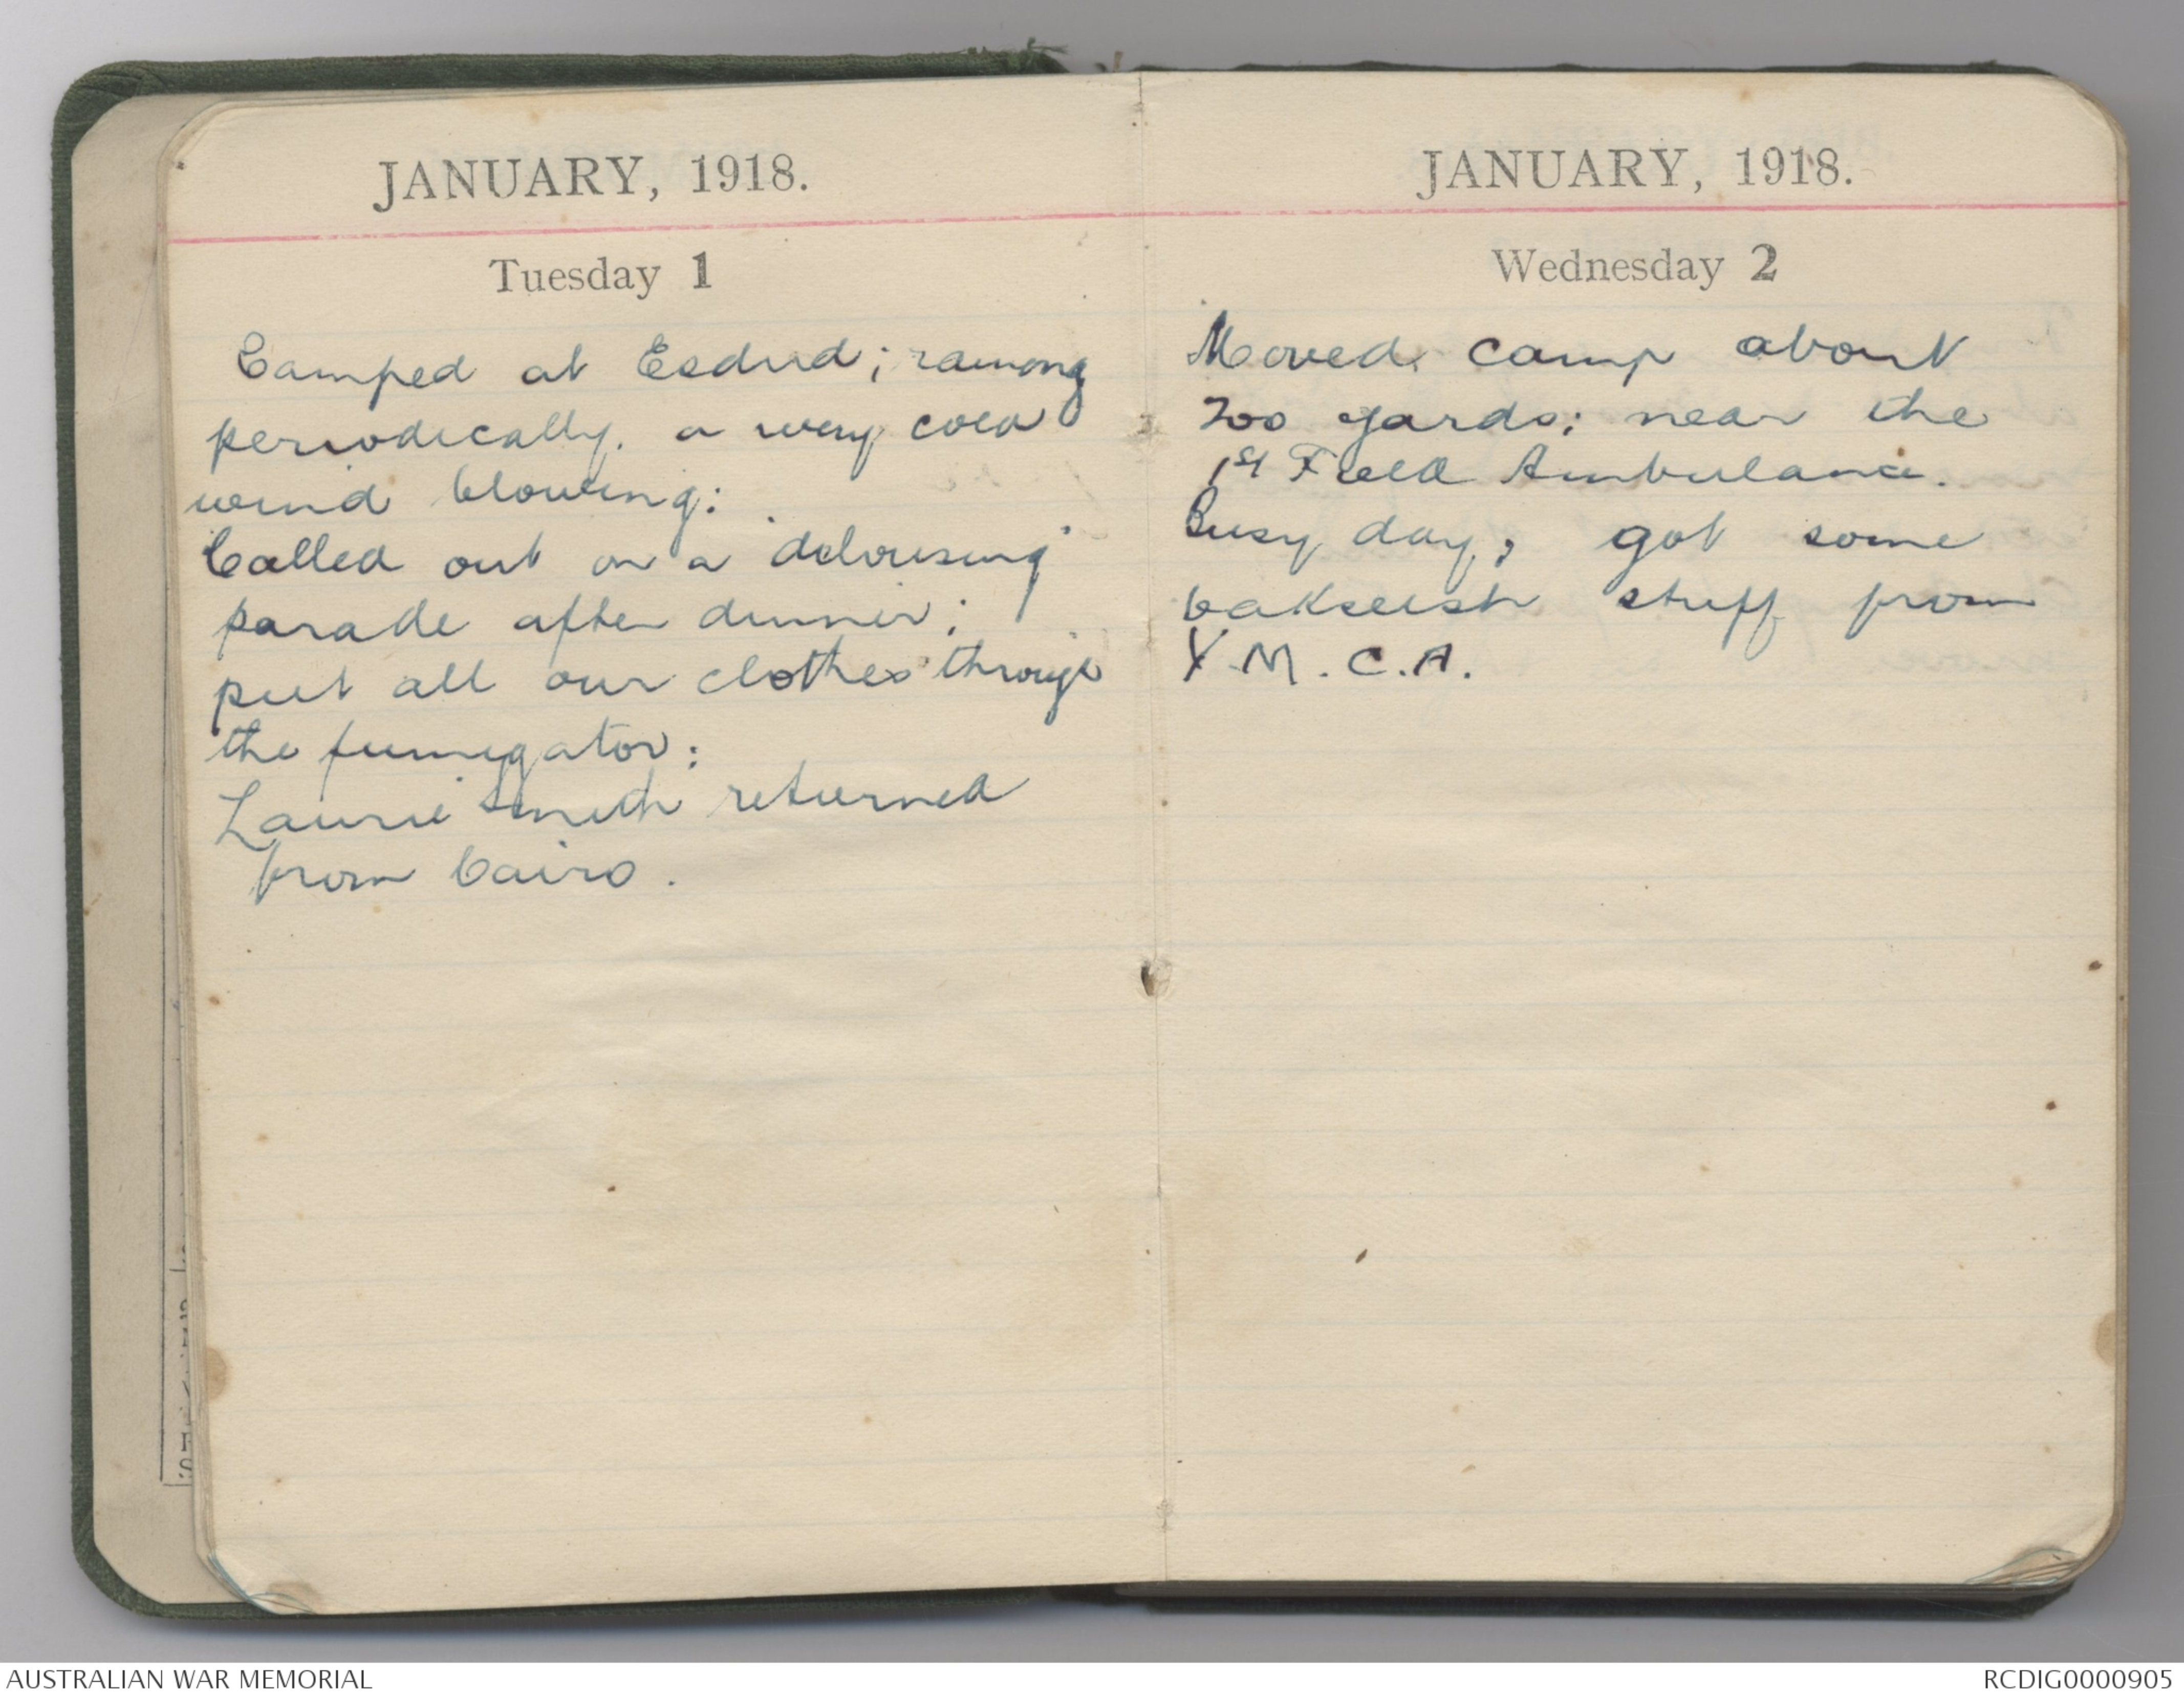 JANUARY, 1918.
Tuesday 1
Camped at Esdud; raining
periodically. a very cold
wind blowing:
Called out on a "delousing"
parade after dinner;
put all our clothes through
the fumigator:
Laurie Smith returned
from Cairo.
JANUARY, 1918.
Wednesday 2
Moved camp about
200 yards; near the
1st Field Ambulance.
Busy day, got some
bakseesh stuff from
Y.M.C.A.
AUSTRALIAN WAR MEMORIAL
RCDIG0000905